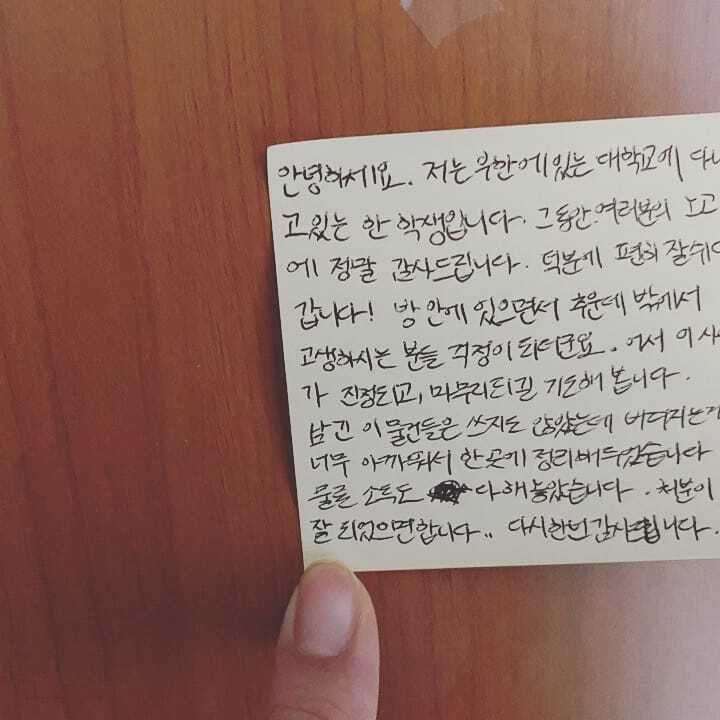 안녕하세요. 저는 우한에 있는 대학교에 다니
고 있는 한 학생입니다. 그동안 여러분의 노고
에 정말 감사드립니다. 덕분에 편히 잘쉬다
갑니다! 방 안에 있으면서 추운데 밖에서
고생하시는 분들 걱정이 되더군요. 어서 이 사
가 진정되고, 마무리되길 기도해 봅니다.
남긴 이 물건들은 쓰지도 않았는데 버려지는게
너무 아까워서 한곳에 정리해두었습니다
물론 소독도 다 해 놓았습니다. 처분이
잘 되었으면 합니다.. 다시한번 감사드립니다.